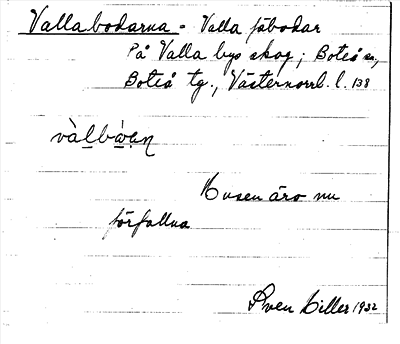 Vallabodarna - Valla fäbodar
På Valla bys skog; Boteå sn,
Boteå tg., Västernorrl. l. 138
Husen äro nu
förfallna
Sven Hiller 1932